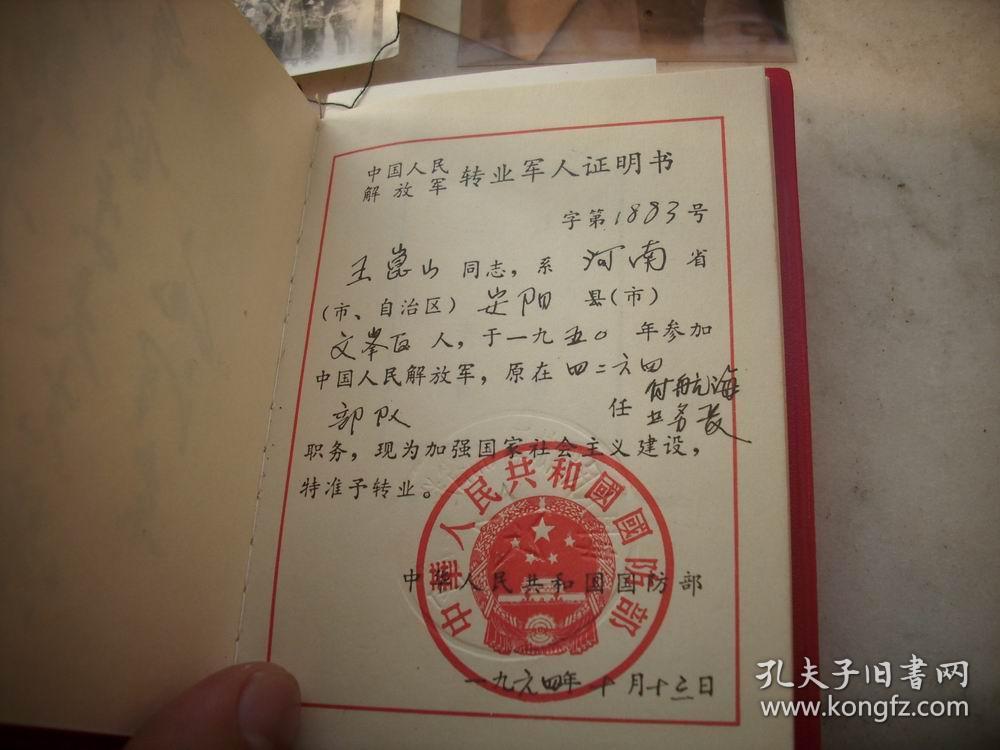 中国人民
解放军 转业军人证明书
字第1883号
王崑山 同志，系 河南 省
（市、自治区）安阳 县（市）
文峯区 人，于一九五〇 年参加
中国人民解放军，原在四二六四
部队 任 付航海业务长
职务，现为加强国家社会主义建设，
特准予转业。
中華人民共和國國防部
中华人民共和国国防部
一九六四年十月十三日
孔夫子旧書网
www.kongfz.com